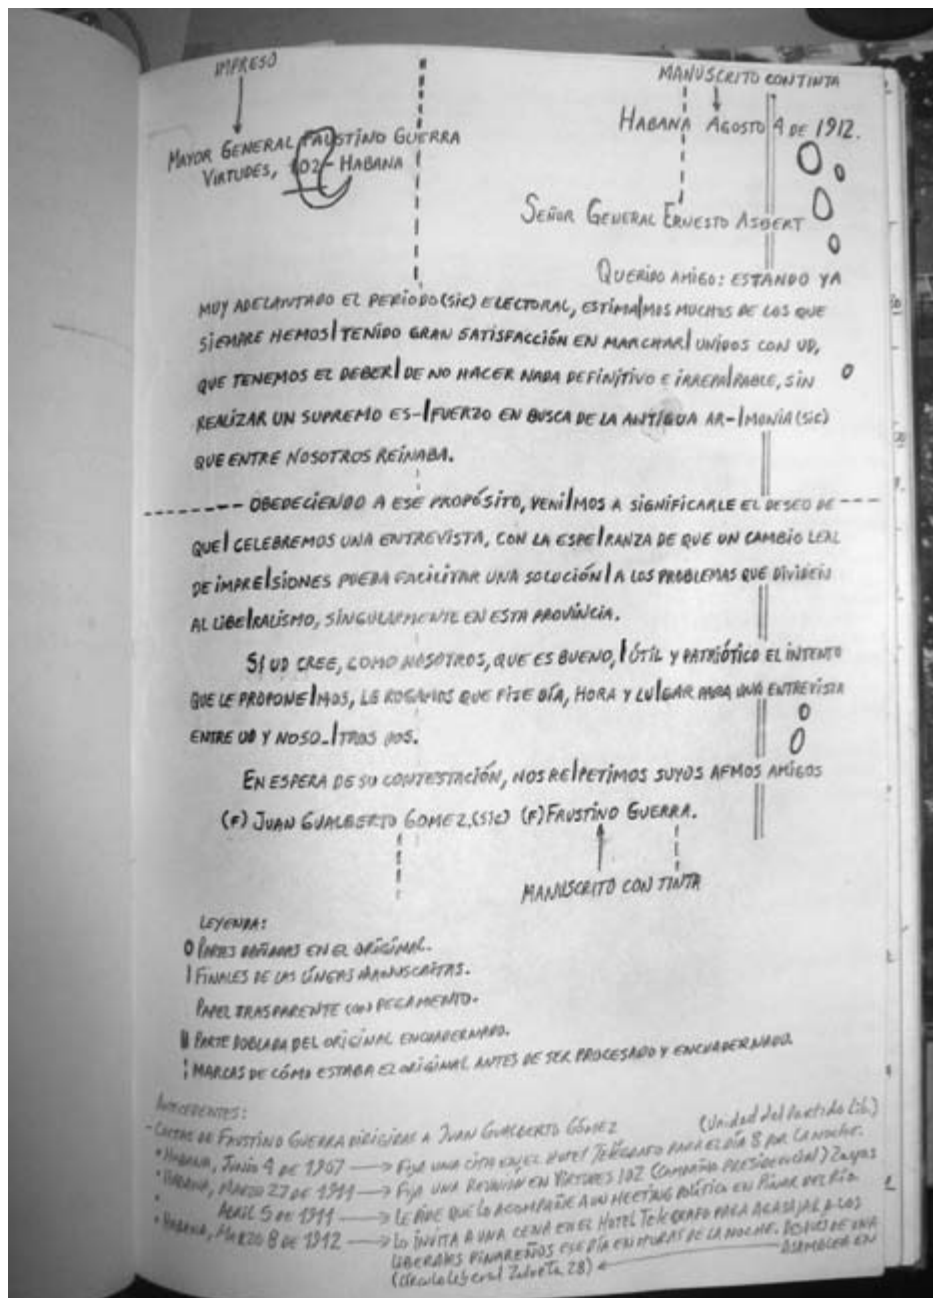 IMPRESO
MANUSCRITO CON TINTA
HABANA AGOSTO 4 DE 1912.
MAYOR GENERAL FAUSTINO GUERRA
VIRTUDES, 102 - HABANA
SEÑOR GENERAL ERNESTO ASBERT
QUERIDO AMIGO: ESTANDO YA
MUY ADELANTADO EL PERÍODO (SIC) ELECTORAL, ESTIMA|MOS MUCHOS DE LOS QUE
SIEMPRE HEMOS| TENIDO GRAN SATISFACCIÓN EN MARCHAR| UNIDOS CON UD,
QUE TENEMOS EL DEBER| DE NO HACER NADA DEFINITIVO E IRREPA|RABLE, SIN
REALIZAR UN SUPREMO ES-|FUERZO EN BUSCA DE LA ANTIGUA AR-|MONÍA (SIC)
QUE ENTRE NOSOTROS REINABA.
------ OBEDECIENDO A ESE PROPÓSITO, VENI|MOS A SIGNIFICARLE EL DESEO DE ---
QUE| CELEBREMOS UNA ENTREVISTA, CON LA ESPE|RANZA DE QUE UN CAMBIO LEAL
DE IMPRE|SIONES PUEDA FACILITAR UNA SOLUCIÓN| A LOS PROBLEMAS QUE DIVIDEN
AL LIBE|RALISMO, SINGULARMENTE EN ESTA PROVINCIA.
SI UD CREE, COMO NOSOTROS, QUE ES BUENO, | ÚTIL Y PATRIÓTICO EL INTENTO
QUE LE PROPONE|MOS, LE ROGAMOS QUE FIJE DÍA, HORA Y LU|GAR PARA UNA ENTREVISTA
ENTRE UD Y NOSO-|TROS DOS.
EN ESPERA DE SU CONTESTACIÓN, NOS RE|PETIMOS SUYOS AFMOS AMIGOS
(F) JUAN GUALBERTO GOMEZ. (SIC) (F) FAUSTINO GUERRA.
MANUSCRITO CON TINTA
LEYENDA:
O PARTES DAÑADAS EN EL ORIGINAL.
| FINALES DE LAS LÍNEAS MANUSCRITAS.
PAPEL TRASPARENTE CON PEGAMENTO.
|| PARTE DOBLADA DEL ORIGINAL ENCUADERNADO.
¦ MARCAS DE CÓMO ESTABA EL ORIGINAL ANTES DE SER PROCESADO Y ENCUADERNADO.
ANTECEDENTES:
- CARTAS DE FAUSTINO GUERRA DIRIGIDAS A JUAN GUALBERTO GÓMEZ (Unidad del Partido Lib.)
* HABANA, JUNIO 4 DE 1907 → FIJA UNA CITA EN EL HOTEL TELÉGRAFO PARA EL DÍA 8 POR LA NOCHE.
* HABANA, MARZO 27 DE 1911 → FIJA UNA REUNIÓN EN VIRTUDES 102 (CAMPAÑA PRESIDENCIAL) Zayas
* ABRIL 5 DE 1911 → LE PIDE QUE LO ACOMPAÑE A UN MEETING POLÍTICO EN PINAR DEL RÍO.
* HABANA, MARZO 8 DE 1912 → LO INVITA A UNA CENA EN EL HOTEL TELÉGRAFO PARA AGASAJAR A LOS
LIBERALES PINAREÑOS ESE DÍA EN HORAS DE LA NOCHE. DESPUÉS DE UNA
ASAMBLEA EN
(Círculo Liberal Zulueta 28) ←